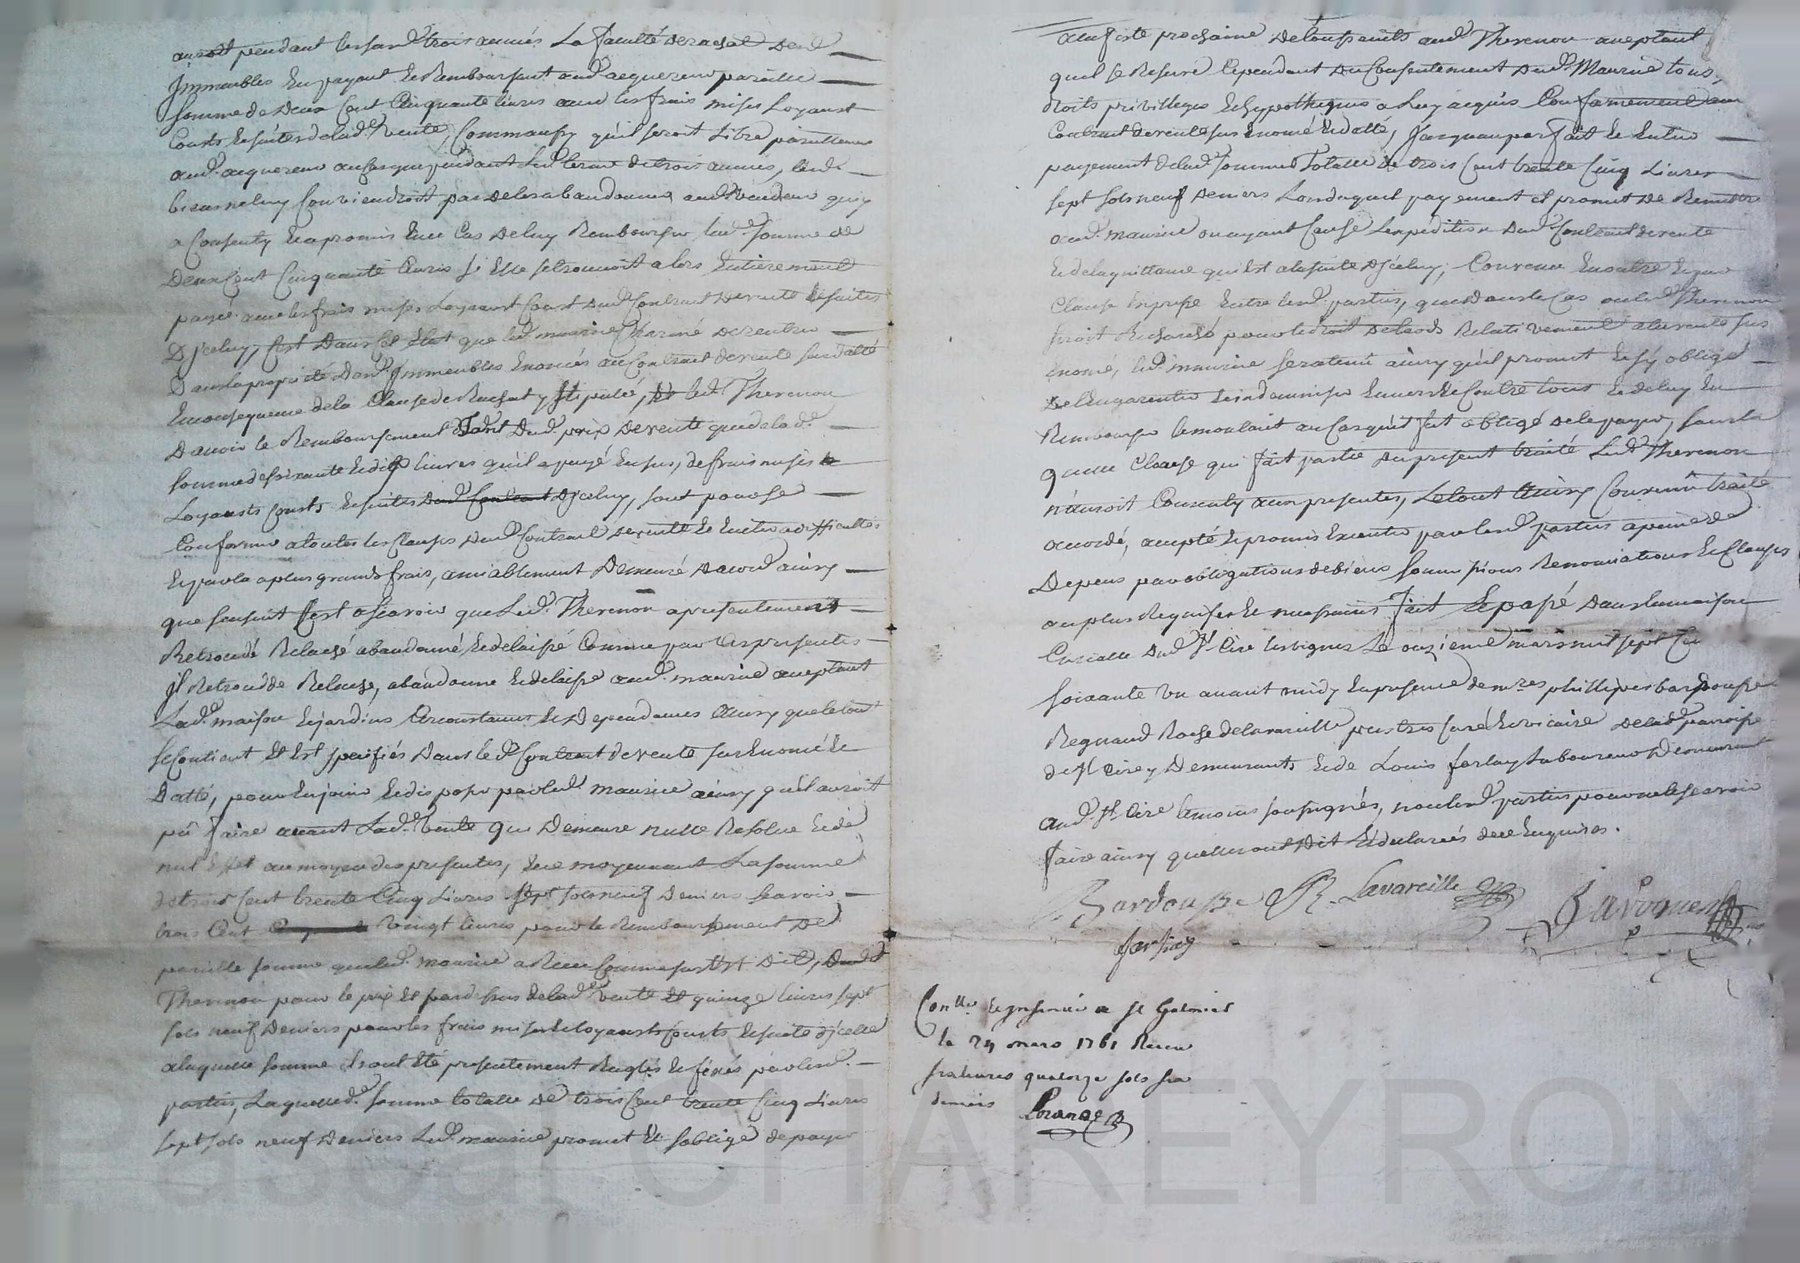 auroit pendant lesd. trois années La faculté de rachat Desd.
Immeubles En payant et Remboursant aud. acquereur pareille
somme de Deux Cent Cinquante livres avec les frais mises Loyaust
Cousts et suites de lad. vente, Comme aussy qu'il seroit Libre pareillement
aud. acquereur au cas que pendant led. terme de trois années, lesd.
biens ne luy Conviendroit pas de les abandonner aud. Vendeur quy
a Consenty et a promis En ce Cas De luy Rembourser lad. somme de
Deux Cent Cinquante Livres si Elle se trouvoit alors Entièrement
payée avec les frais mises Loyaust Coust dud. Contrant De vente et suites
D'jceluy, C'est Dans cet Etat que led. maurice de rentrer
Dans la propriété Desd. Jmmeubles Enoncés au Contrant de vente susdatté
En consequence de la Clause de Rachapt y stipulé, Et led. Thevenon
D'avoir le Remboursement Tant Dud. prix De vente que de la de.
somme de soixante et dix livres qu'il a payé En sus, de frais mises
Loyausts Cousts et suites D'jceluy, sont pour se
Conformer a toutes les Clauses Dud. Contrant De vente Et Eviter a difficultés
Et par la a plus grands frais, amiablement Demeuré D'acord ainsy
que s'ensuit C'est a Sçavoir que Led. Thevenon a présentement
Retrocédé Relaché abandonné et délaissé Comme par Ces présentes
jl Retrocedde Relache, abandonne et délaisse aud. maurice aceptant
Lad. maison et jardins Circonstances et Dépendances Ainsy que le tout
se Contient et Est spécifiés Dans led. Contrant de vente sus Enoncé Et
Datté, pour En jouir et disposer par led. maurice ainsy qu'il auroit
pû faire avant Lad. Vente qui Demeure nulle Résolue et de
nul Effet au moyen des présentes, Et ce moyennant La somme
de trois Cent trente Cinq Livres sept sols neuf Deniers Sçavoir
trois Cent Vingt livres pour le Remboursement De
pareille somme que led. maurice a Reçu Comme sus Est Dit, Dud.
Thevenon pour le prix Et pardessus de lad. vente Et quinze livres sept
sols neuf Deniers pour les frais mises et loyausts Cousts et suite d'jcelle
a laquelle somme ils ont Eté présentement Réglés et fixés par lesd.
parties, Laquelle d. somme totalle De trois Cent trente Cinq Livres
sept sols neuf Deniers Led. maurice promet Et s'oblige de payer
a la feste prochaine De toussaints aud. Thevenon aceptant
qu'il se Réserve Cependant Du Consentement Dud. Maurice tous
droits privilleges et hypotheques a Luy acquis Conformement au
Contrant de vente sus Enoncé et datté, Jusques au parfait Et Entier
payement de lad. somme Totalle De trois Cent trente Cinq Livres
sept sols neuf Deniers Lors duquel payement il promet De Remettre
aud. maurice ou ayant Cause L'expédition Dud. Contrant de vente
et de la quittance qui Est a la suite D'jceluy, Convenu En outre
Clause Expresse Entre lesd. parties, que dans le Cas ou led. Thevenon
seroit Recherché pour le droit de Lods Relativement a la vente sus
Enoncé, led. maurice sera tenu ainsy qu'il promet Et s'y oblige
De l'En garentir Et indamniser Envers et Contre tous Et de luy En
Rembourser le montant au Cas qu'il fut obligé de le payer, sans la
quelle Clause qui fait partie Du présent traité Led. Thevenon
n'auroit Consenty aux présentes, Le tout Ainsy Convenû traité
accordé, accepté Et promis Exécuter par lesd. parties a peine de
Depens par obligations de biens soumissions Renonciations et Clauses
au plus Requises Et nécessaires fait Et passé Dans la maison
Curialle Dud. St Cire les vignes Le onzieme mars mil sept Cent
soixante un avant midy En présence de mres phillipes bardouse
Regnaud Roche de lavareille prestres Curé et vicaire De lad. parroisse
de St Cire y Demeurants et de Louis ferlay Laboureur Demeurant
aud. St Cire témoins soussignés, non lesd. parties pour ne le Sçavoir
faire ainsy qu'elles ont Dit et déclarées de ce Enquises.
Bardouse R. Lavareille
Con.lé et insinué a St Galmier
le 24 mars 1761 Receu
quatorze sols six
deniers